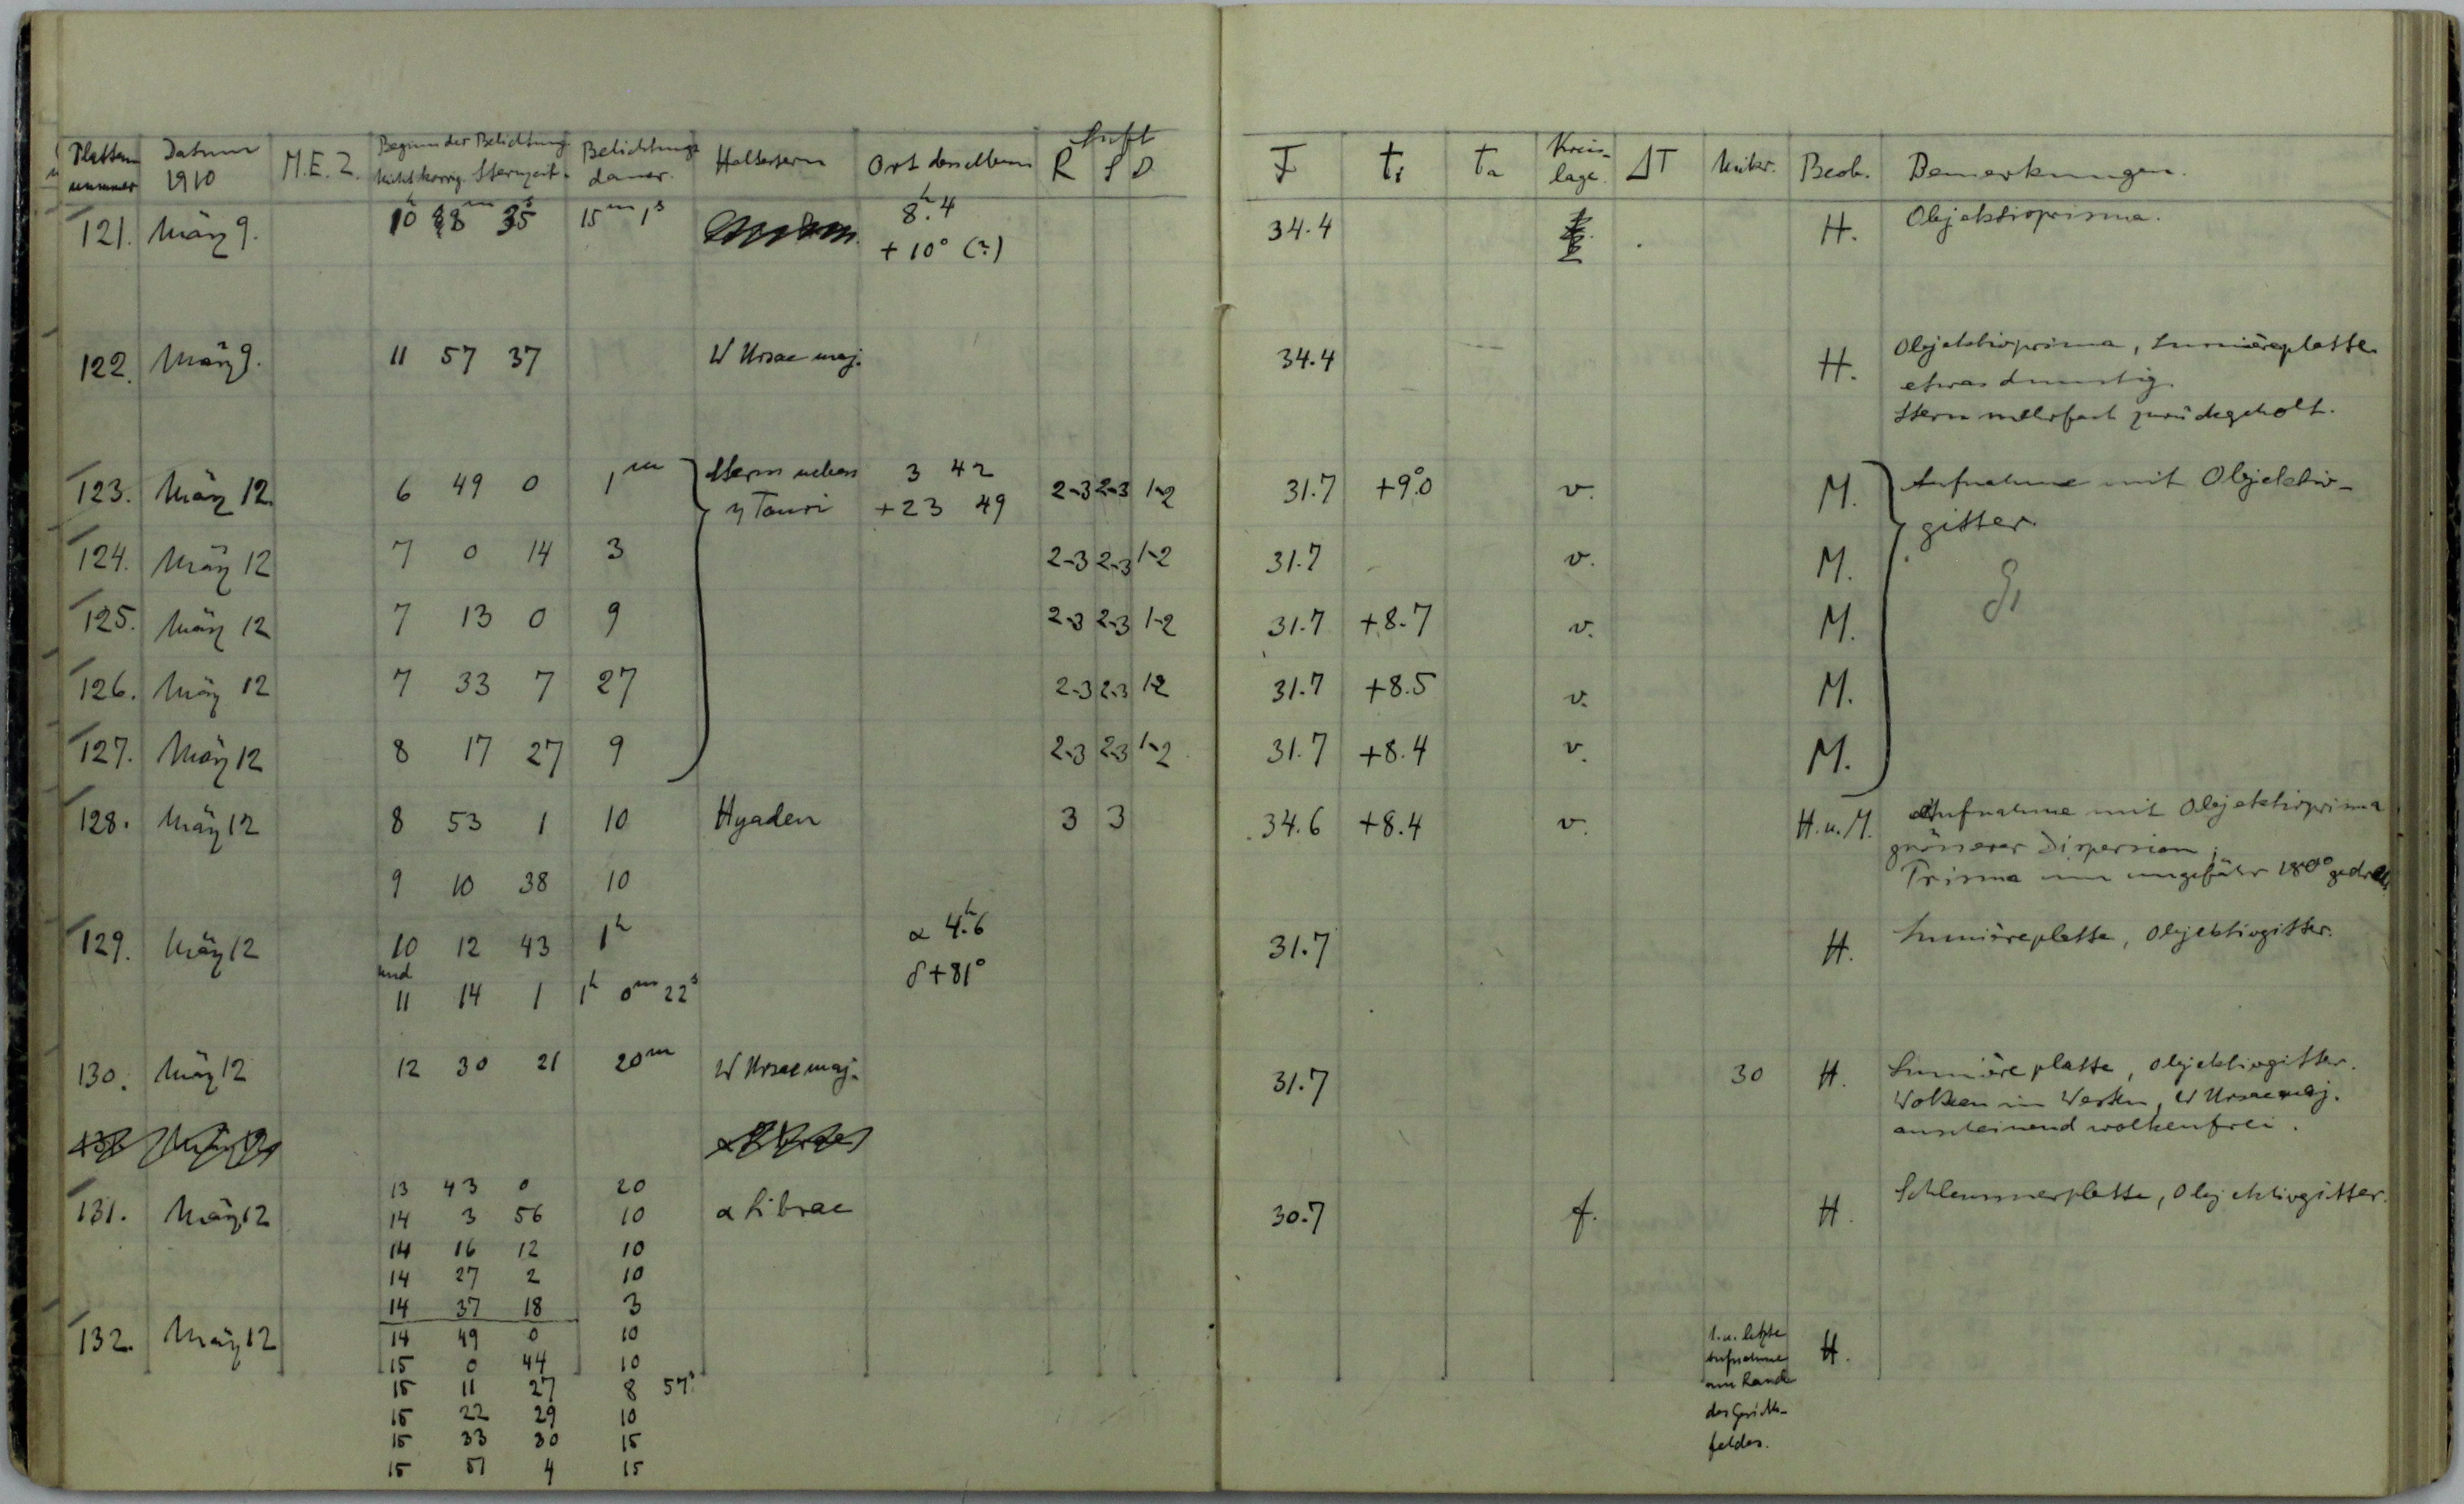 Platten nummer | Datum 1910 | M.E.Z. | Beginn der Belichtung nicht korrig. Sternzeit. | Belichtungs dauer. | Haltestern | Ort desselben | Luft R S D | F | ti | ta | Kreis- lage. | ΔT | Mikr. | Beob. | Bemerkungen.
121. | März 9. | 10h 28m 35s | 15m 1s | 8h.4 | 34.4 | H. | Objektivprisma.
+10° (?)
122. | März 9. | 11 57 37 | W Ursae maj. | 34.4 | H. | Objektivprisma, Lumièreplatte
etwas dunstig.
Stern mehrfach zurückgeholt.
123. | März 12. | 6 49 0 | 1m | Stern neben | 3 42 | 2-3 | 2-3 | 1-2 | 31.7 | +9°.0 | v. | M. | Aufnahme mit Objektiv-
η Tauri | +23 49 | gitter.
124. | März 12 | 7 0 14 | 3 | 2-3 | 2-3 | 1-2 | 31.7 | v. | M.
125. | März 12 | 7 13 0 | 9 | 2-3 | 2-3 | 1-2 | 31.7 | +8.7 | v. | M.
126. | März 12 | 7 33 7 | 27 | 2-3 | 2-3 | 1-2 | 31.7 | +8.5 | v. | M.
127. | März 12 | 8 17 27 | 9 | 2-3 | 2-3 | 1-2 | 31.7 | +8.4 | v. | M.
128. | März 12 | 8 53 1 | 10 | Hyaden | 3 | 3 | 34.6 | +8.4 | v. | H.u.M. | Aufnahme mit Objektivprisma
grösserer Dispersion;
9 10 38 | 10 | Prisma um ungefähr 180° gedreht
129. | März 12 | 10 12 43 | 1h | α 4h.6 | 31.7 | H. | Lumièreplatte, Objektivgitter.
und
11 14 1 | 1h 0m 22s | δ +81°
130. | März 12 | 12 30 21 | 20m | W Ursae maj. | 31.7 | 30 | H. | Lumière platte, Objektivgitter.
Wolken im Westen, W Ursae maj.
anscheinend wolkenfrei.
13 43 0 | 20
131. | März 12 | 14 3 56 | 10 | α Librae | 30.7 | f. | H. | Schleussnerplatte, Objektivgitter.
14 16 12 | 10
14 27 2 | 10
14 37 18 | 3
132. | März 12 | 14 49 0 | 10 | 1. u. letzte | H.
15 0 44 | 10 | Aufnahme
15 11 27 | 8 57s | am Rand
15 22 29 | 10 | des Gesichts-
15 33 30 | 15 | feldes.
15 51 4 | 15